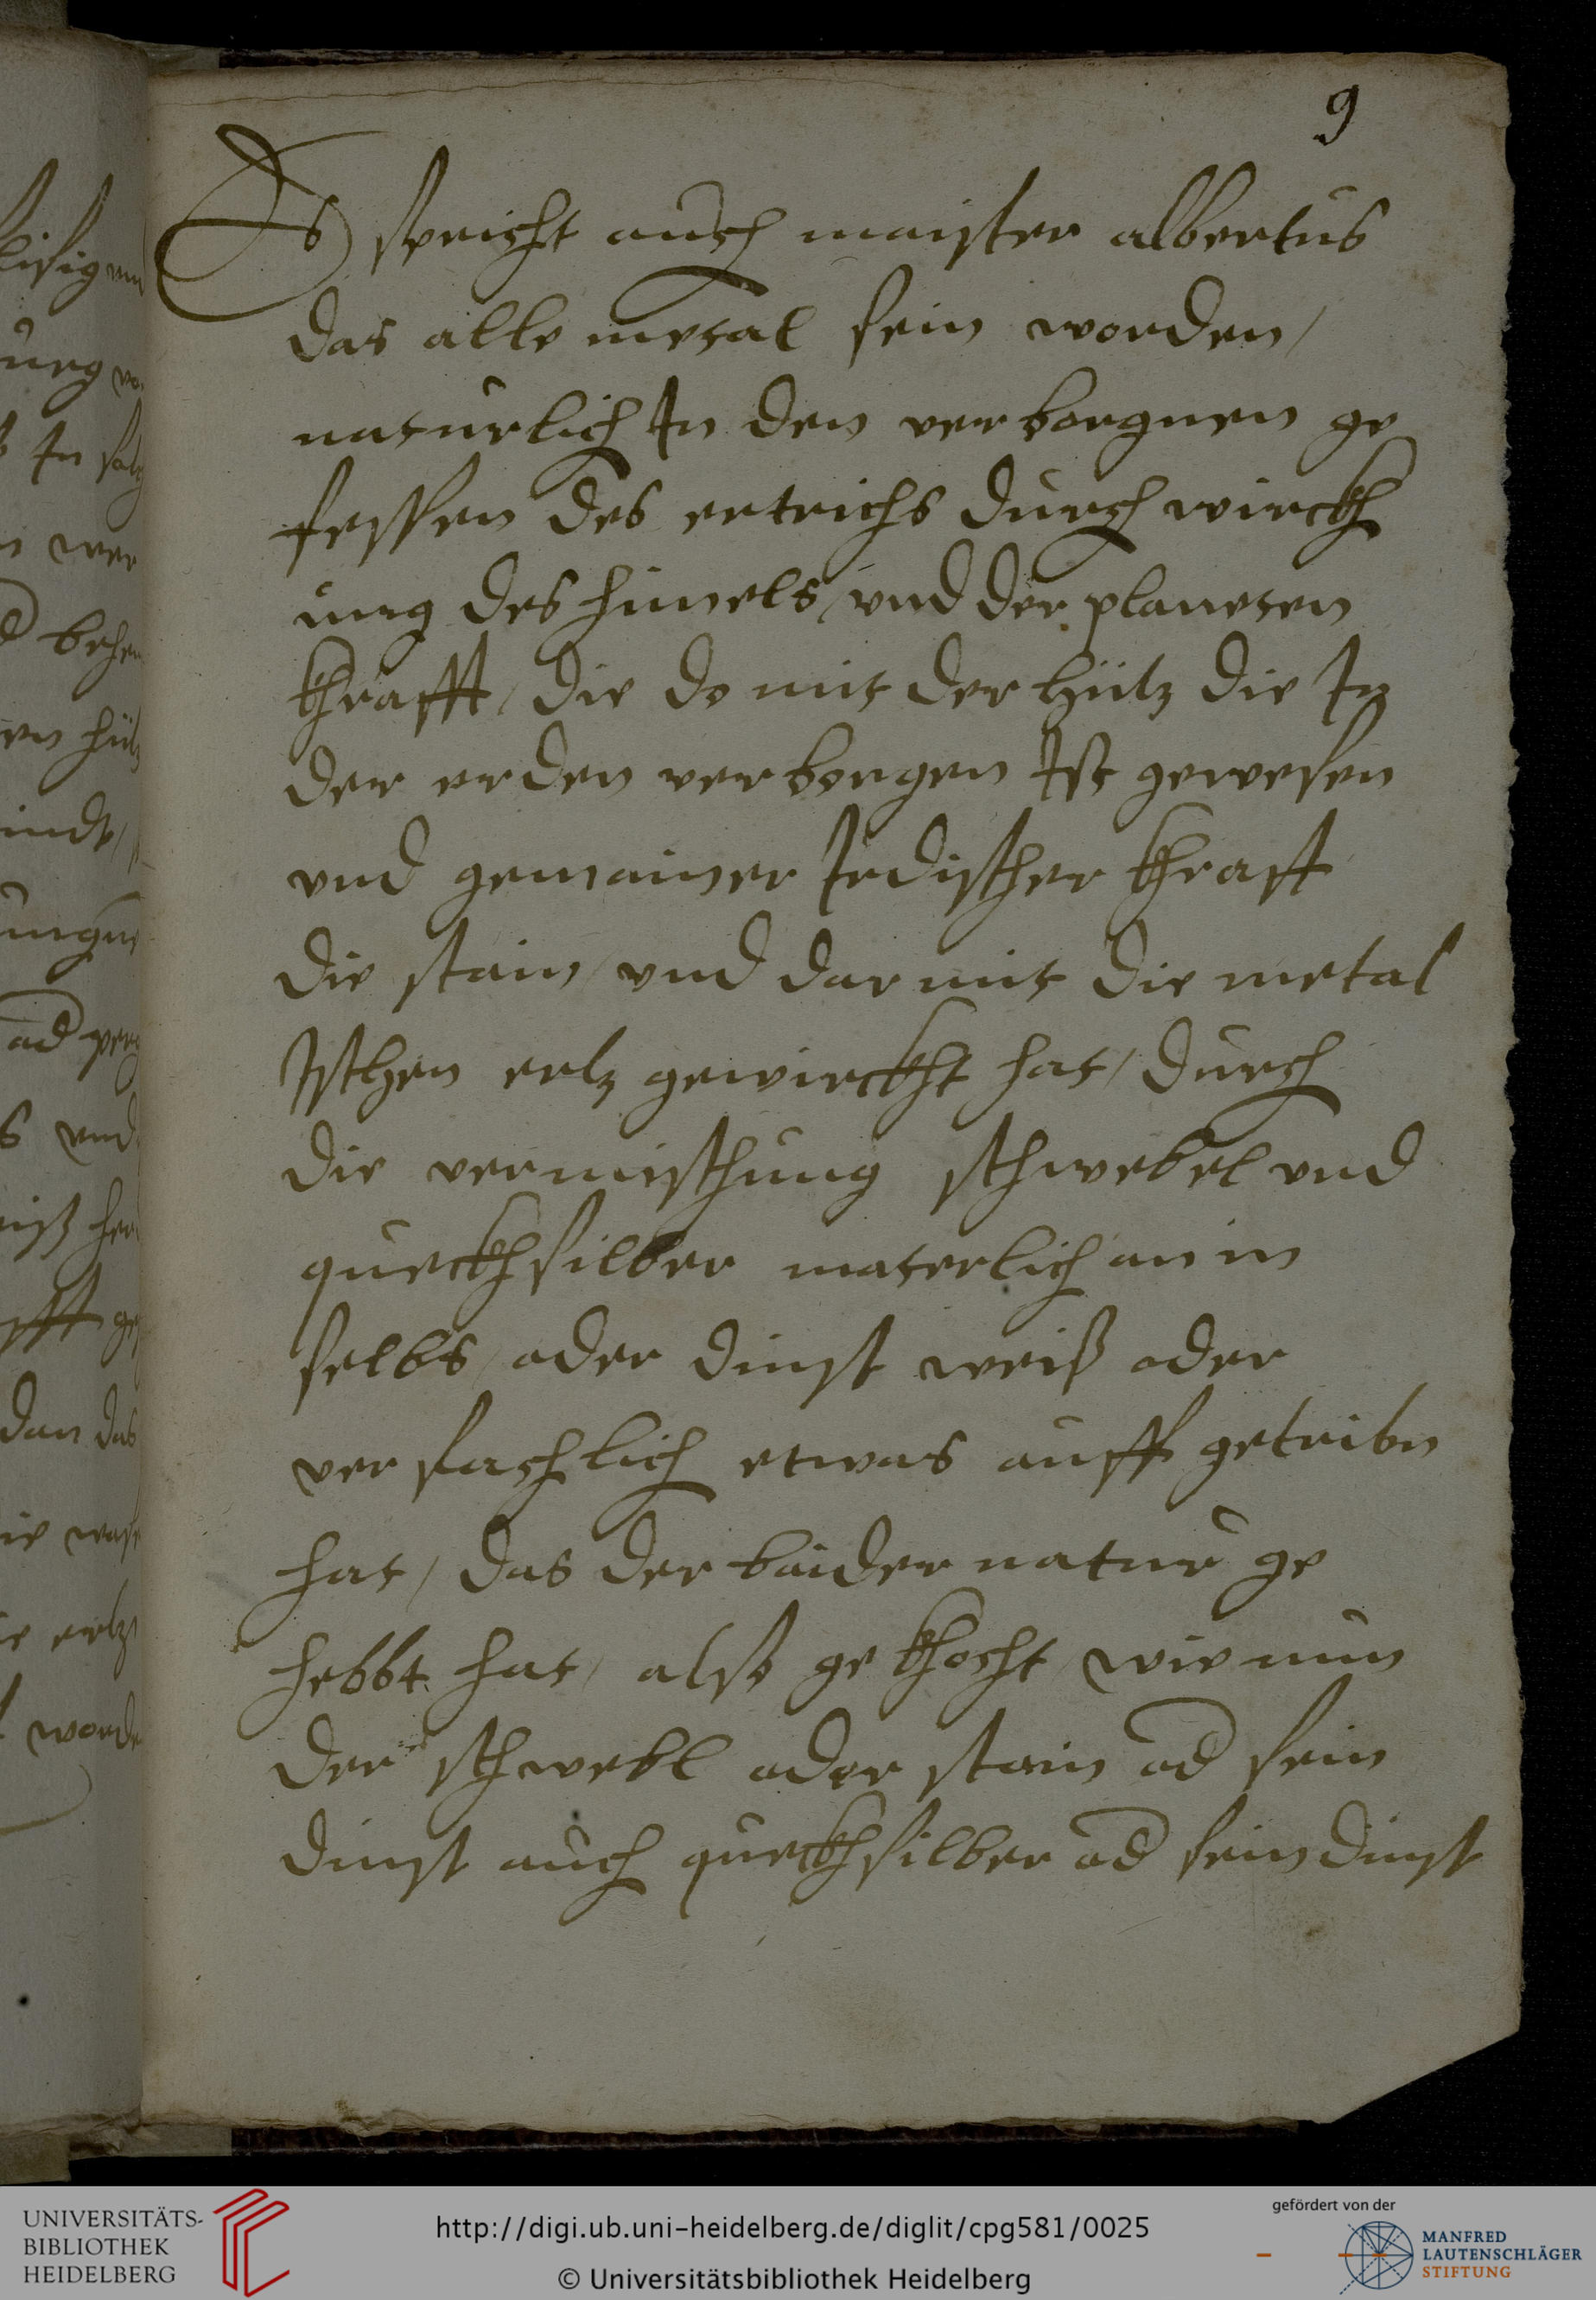 9
Es spricht auch maister albertus
das alle metal sein worden /
naturlich In den verborgnen ge
fessen des ertrichs durch wirckh
ung des himels / vnd der planeten
khrafft / die do mit der hütz die In
der erden verborgen Ist gewesen
vnd gemainer Irdischer khrafft
die stain / vnd dar mit die metal
Ischen ertz gewirckht hat / durch
die vermischung schwebel vnd
queckhsilber materlich an in
selbs / oder dinst weiß oder
versachlich etwas auff getribn
hat / das der baider natur ge
hebbt hat / also gekhocht / wie nun
der schwebl oder stain od sein
dinst auch queckhsilber od sein dinst
UNIVERSITÄTS-
BIBLIOTHEK
HEIDELBERG
http://digi.ub.uni-heidelberg.de/diglit/cpg581/0025
© Universitätsbibliothek Heidelberg
gefördert von der
MANFRED
LAUTENSCHLÄGER
STIFTUNG